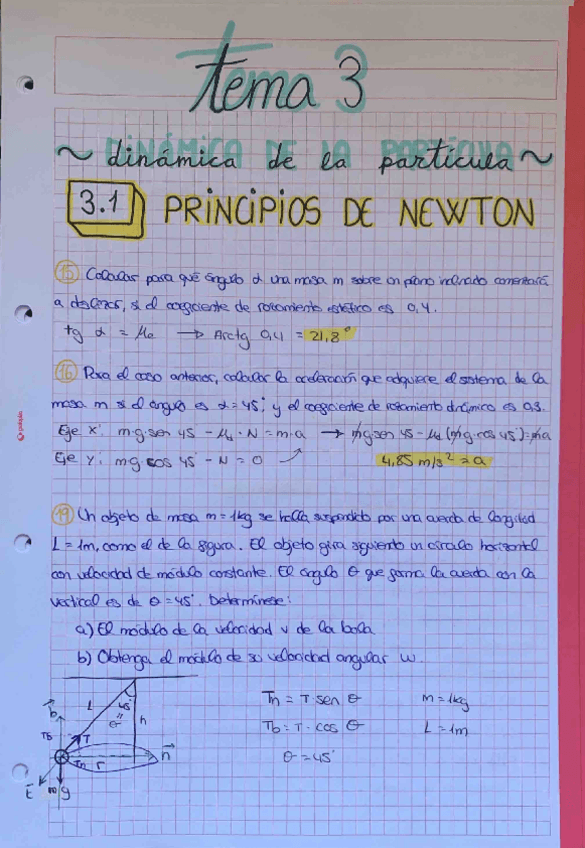 tema 3
~ dinámica de la partícula ~
3.1 PRINCIPIOS DE NEWTON
15 Calcular para qué ángulo α una masa m sobre un plano inclinado comenzará
a deslizar, si el coeficiente de rozamiento estático es 0,4.
tg α = μe → Arctg 0,4 = 21,8°
16 Para el caso anterior, calcular la aceleración que adquiere el sistema de la
masa m si el ángulo es α = 45° y el coeficiente de rozamiento dinámico es 0,3.
Eje X: m·g·sen 45 - μd · N = m·a → mg sen 45 - μd (mg·cos 45°) = ma
Eje Y: m·g·cos 45° - N = 0 4,85 m/s² = a
19 Un objeto de masa m = 1kg se halla suspendido por una cuerda de longitud
L = 1m, como el de la figura. El objeto gira siguiendo un círculo horizontal
con velocidad de módulo constante. El ángulo θ que forma la cuerda con la
vertical es de θ = 45°. Determínese:
a) El módulo de la velocidad v de la bola
b) Obtenga el módulo de su velocidad angular ω.
Tn = T·sen θ m = 1kg
Tb = T·cos θ L = 1m
θ = 45°
L 45° θ h
b Tb T
Tn r n
t mg